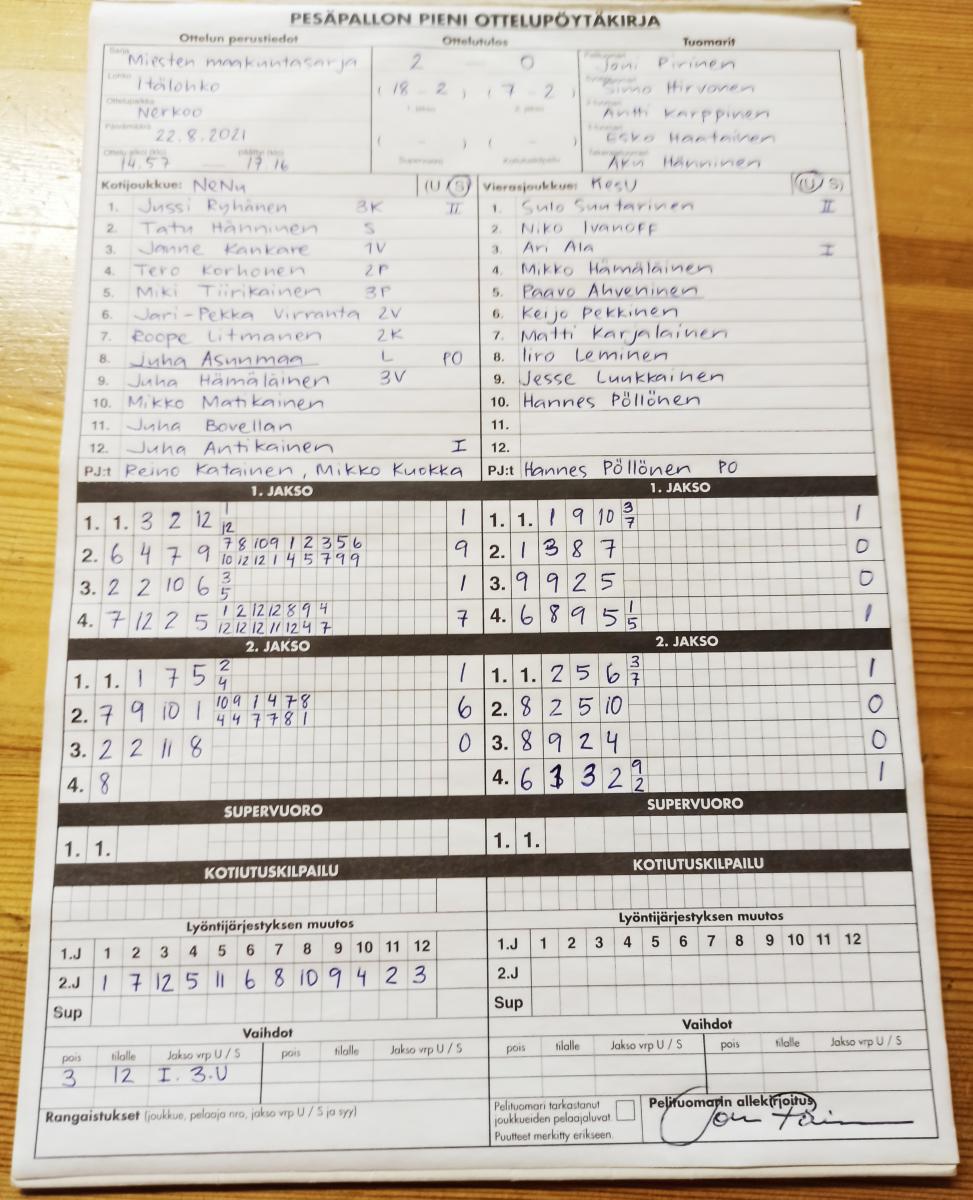 PESÄPALLON PIENI OTTELUPÖYTÄKIRJA
Ottelun perustiedot Ottelutulos Tuomarit
Sarja Miesten maakuntasarja 2 0 Joni Pirinen
Lohko Itälohko ( 18 - 2 ) ( 7 - 2 ) Simo Hirvonen
Ottelupaikka Nerkoo 1. jakso 2. jakso Antti Karppinen
Päivämäärä 22.8.2021 ( - ) ( - ) Esko Haatainen
14.57 17.16 Supervuoro Kotiutuskilpailu Aku Hänninen
Kotijoukkue: NeNu (U / S) Vierasjoukkue: KesU (U / S)
1. Jussi Ryhänen 3K II 1. Sulo Suutarinen II
2. Tatu Hänninen S 2. Niko Ivanoff
3. Janne Kankare 1V 3. Ari Ala I
4. Tero Korhonen 2P 4. Mikko Hämäläinen
5. Miki Tiirikainen 3P 5. Paavo Ahveninen
6. Jari-Pekka Virranta 2V 6. Keijo Pekkinen
7. Roope Litmanen 2K 7. Matti Karjalainen
8. Juha Asunmaa L PO 8. Iiro Leminen
9. Juha Hämäläinen 3V 9. Jesse Luukkainen
10. Mikko Matikainen 10. Hannes Pöllönen
11. Juha Bovellan 11.
12. Juha Antikainen I 12.
PJ:t Reino Katainen, Mikko Kuokka PJ:t Hannes Pöllönen PO
1. JAKSO 1. JAKSO
1. 1. 3 2 12 1/12 1 1. 1. 1 9 10 3/7 1
2. 6 4 7 9 7/10 8/12 10/12 9/1 1/4 2/5 3/7 5/9 6/9 9 2. 1 3 8 7 0
3. 2 2 10 6 3/5 1 3. 9 9 2 5 0
4. 7 12 2 5 1/12 2/12 12/12 12/11 8/12 9/4 4/7 7 4. 6 8 9 5 1/5 1
2. JAKSO 2. JAKSO
1. 1. 1 7 5 2/4 1 1. 1. 2 5 6 3/7 1
2. 7 9 10 1 10/4 9/4 1/7 4/7 7/8 8/1 6 2. 8 2 5 10 0
3. 2 2 11 8 0 3. 8 9 2 4 0
4. 8 4. 6 3 3 2 9/2 1
SUPERVUORO SUPERVUORO
1. 1. 1. 1.
KOTIUTUSKILPAILU KOTIUTUSKILPAILU
Lyöntijärjestyksen muutos Lyöntijärjestyksen muutos
1.J 1 2 3 4 5 6 7 8 9 10 11 12 1.J 1 2 3 4 5 6 7 8 9 10 11 12
2.J 1 7 12 5 11 6 8 10 9 4 2 3 2.J
Sup Sup
Vaihdot Vaihdot
pois tilalle Jakso vrp U / S pois tilalle Jakso vrp U / S pois tilalle Jakso vrp U / S pois tilalle Jakso vrp U / S
3 12 I. 3.U
Rangaistukset (joukkue, pelaaja nro, jakso vrp U / S ja syy) Pelituomari tarkastanut Pelituomarin allekirjoitus
joukkueiden pelaajaluvat.
Puutteet merkitty erikseen.